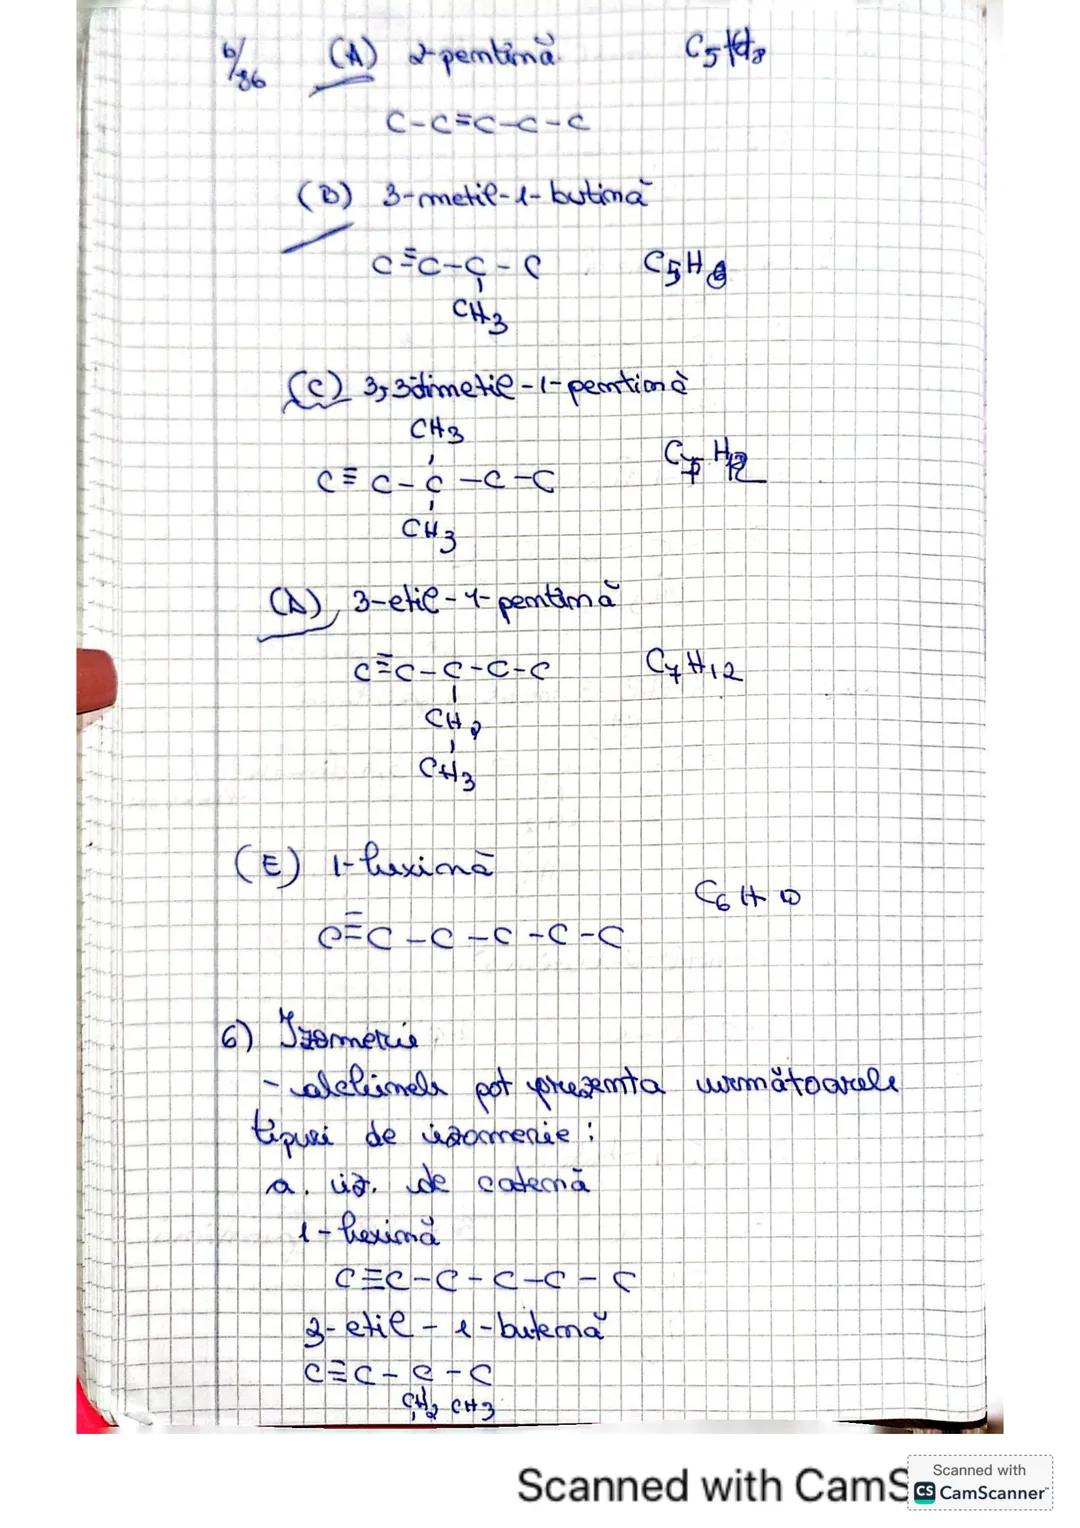 6/86 (A) 2-pentină C5H8
C-C≡C-C-C
(B) 3-metil-1-butină
C≡C-C-C C5H8
CH3
(C) 3,3dimetil-1-pentină
CH3
C≡C-C-C-C C7H12
CH3
(D) 3-etil-1-pentină
C≡C-C-C-C C7H12
CH2
CH3
(E) 1-hexină
C6H10
C≡C-C-C-C-C
6) Izomerie
- alchinele pot prezenta următoarele
tipuri de izomerie:
a. iz. de catenă
1-hexină
C≡C-C-C-C-C
3-etil-1-butenă
C≡C-C-C
CH2 CH3
Scanned with CamS
Scanned with
CS CamScanner